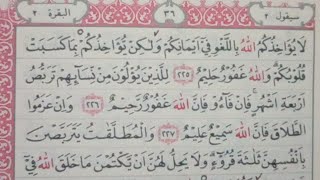 سيقول ٢ ٣٦ البقرة ٢
لَا يُؤَاخِذُكُمُ اللّٰهُ بِاللَّغْوِ فِيْٓ اَيْمَانِكُمْ وَلٰكِنْ يُّؤَاخِذُكُمْ بِمَا كَسَبَتْ
قُلُوْبُكُمْ ؕ وَاللّٰهُ غَفُوْرٌ حَلِيْمٌ ﴿٢٢٥﴾ لِلَّذِيْنَ يُؤْلُوْنَ مِنْ نِّسَآئِهِمْ تَرَبُّصُ
اَرْبَعَةِ اَشْهُرٍ ۚ فَاِنْ فَآءُوْ فَاِنَّ اللّٰهَ غَفُوْرٌ رَّحِيْمٌ ﴿٢٢٦﴾ وَاِنْ عَزَمُوا
الطَّلَاقَ فَاِنَّ اللّٰهَ سَمِيْعٌ عَلِيْمٌ ﴿٢٢٧﴾ وَالْمُطَلَّقٰتُ يَتَرَبَّصْنَ
بِاَنْفُسِهِنَّ ثَلٰثَةَ قُرُوْٓءٍ ؕ وَلَا يَحِلُّ لَهُنَّ اَنْ يَّكْتُمْنَ مَا خَلَقَ اللّٰهُ فِيْٓ